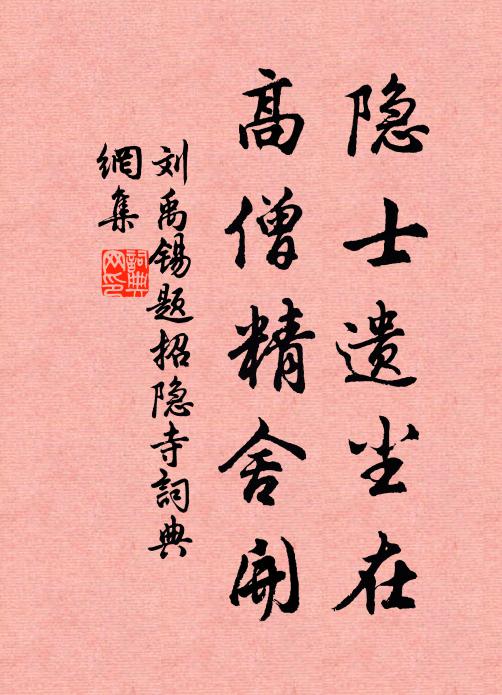 隐士遗尘在
高僧精舍開
刘禹锡题招隐寺詞典
網集
詞典网印